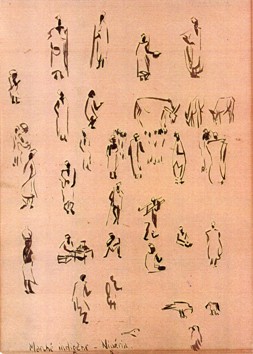 Marché indigène - Nigéria